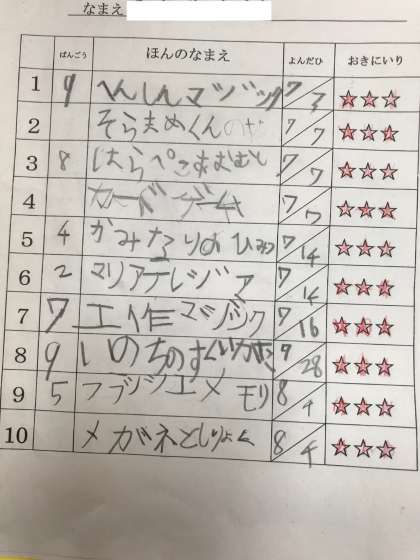 なまえ
ばんごう ほんのなまえ よんだひ おきにいり
1 9 へんしんマジック 7/3 ☆☆☆
2 そらまめくんのベ 7/7 ☆☆☆
3 8 はらぺこあおむし 7/7 ☆☆☆
4 カードゲーム 7/7 ☆☆☆
5 4 かみなりのひみつ 7/14 ☆☆☆
6 2 マリアテレジア 7/14 ☆☆☆
7 7 工作マジック 7/16 ☆☆☆
8 9 いのちのすくい 7/28 ☆☆☆
9 5 モリ 8/4 ☆☆☆
10 メガネとしりょく 8/4 ☆☆☆